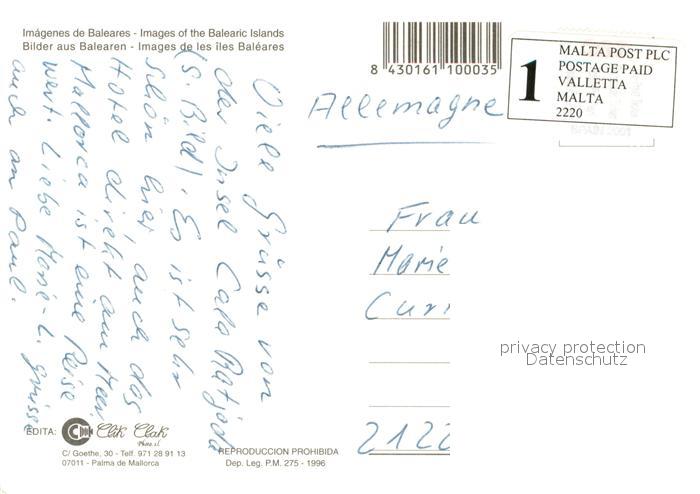 Imágenes de Baleares - Images of the Balearic Islands
Bilder aus Balearen - Images de les îles Baléares
8 430161 100035
1
MALTA POST PLC
POSTAGE PAID
VALLETTA
MALTA
2220
Allemagne
Viele Grüsse von
der Insel Cala Ratjada
(s. Bild). Es ist sehr
schön hier, auch das
Hotel direkt am Meer
Mallorca ist eine Reise
wert. Liebe Grüsse
auch an Paul.
Frau
Marie
Curi
2122
privacy protection
Datenschutz
EDITA:
Clik Clak
Phot. s.l.
C/ Goethe, 30 - Telf. 971 28 91 13
07011 - Palma de Mallorca
REPRODUCCION PROHIBIDA
Dep. Leg. P.M. 275 - 1996